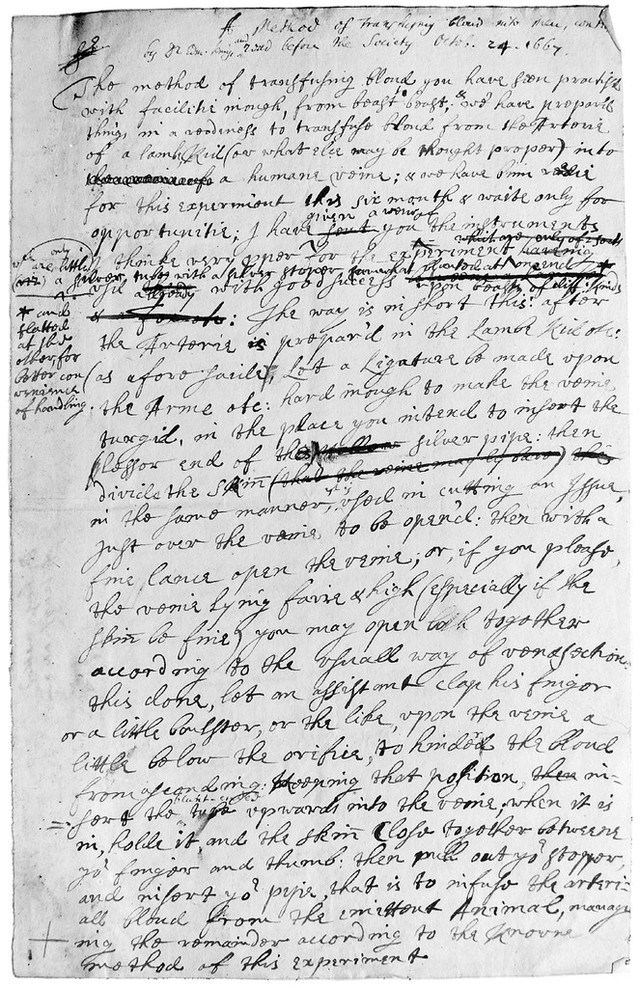 A Method of Transfusing bloud into Men,
by Dr Edm. King, and read before the Society Octob. 24. 1667.
The method of transfusing bloud you have seen practis'd
with facilitie inough, from beast to beast; & we have prepar'd
things in a readeness to transfuse bloud from the Arterie
of a lamb, Kid (or what else may be thought proper) into
a humane veine; & we have binn
for this experiment this six month & waite only for
opportunitie; I have given a view of
sent you the instruments
I thinke very pper for the experiment having
which are only
(viz) a silver tube with a silver stopper somewhat
us'd already with good success upon beasts
The way is in short this: after
* and
flatted
at the
other for
better con
venience
of handling.
the Arterie is prepar'd in the Lambe Kid etc:
(as afore saide) Let a Ligature be made upon
the Arme etc: hard inough to make the veine
turgid, in the place you intend to insert the
lesser end of the silver pipe: then
divide the skin (that the veine may ly bare)
in the same manner, as is us'd in cutting an Issue,
just over the veine to be open'd: then with a
fine lance open the veine; or, if you please,
the veine lying faire & high (especially if the
skinn be fine) you may open both together
according to the usuall way of venesection
this done, let an assistant clap his finger
or a little boulster, or the like, upon the veine a
little below the orifice, to hinder the bloud
from ascending: Keeping that position, then in-
blunt-ended
sert the tube upwards into the veine, when it is
in, holde it and the skinn close together betweene
yor finger and thumb: then pull out yor stopper,
and insert yor pipe, that is to infuse the arteri-
all bloud from the emittent Animal, manag
ing the remainder according to the knowne
method of this experiment